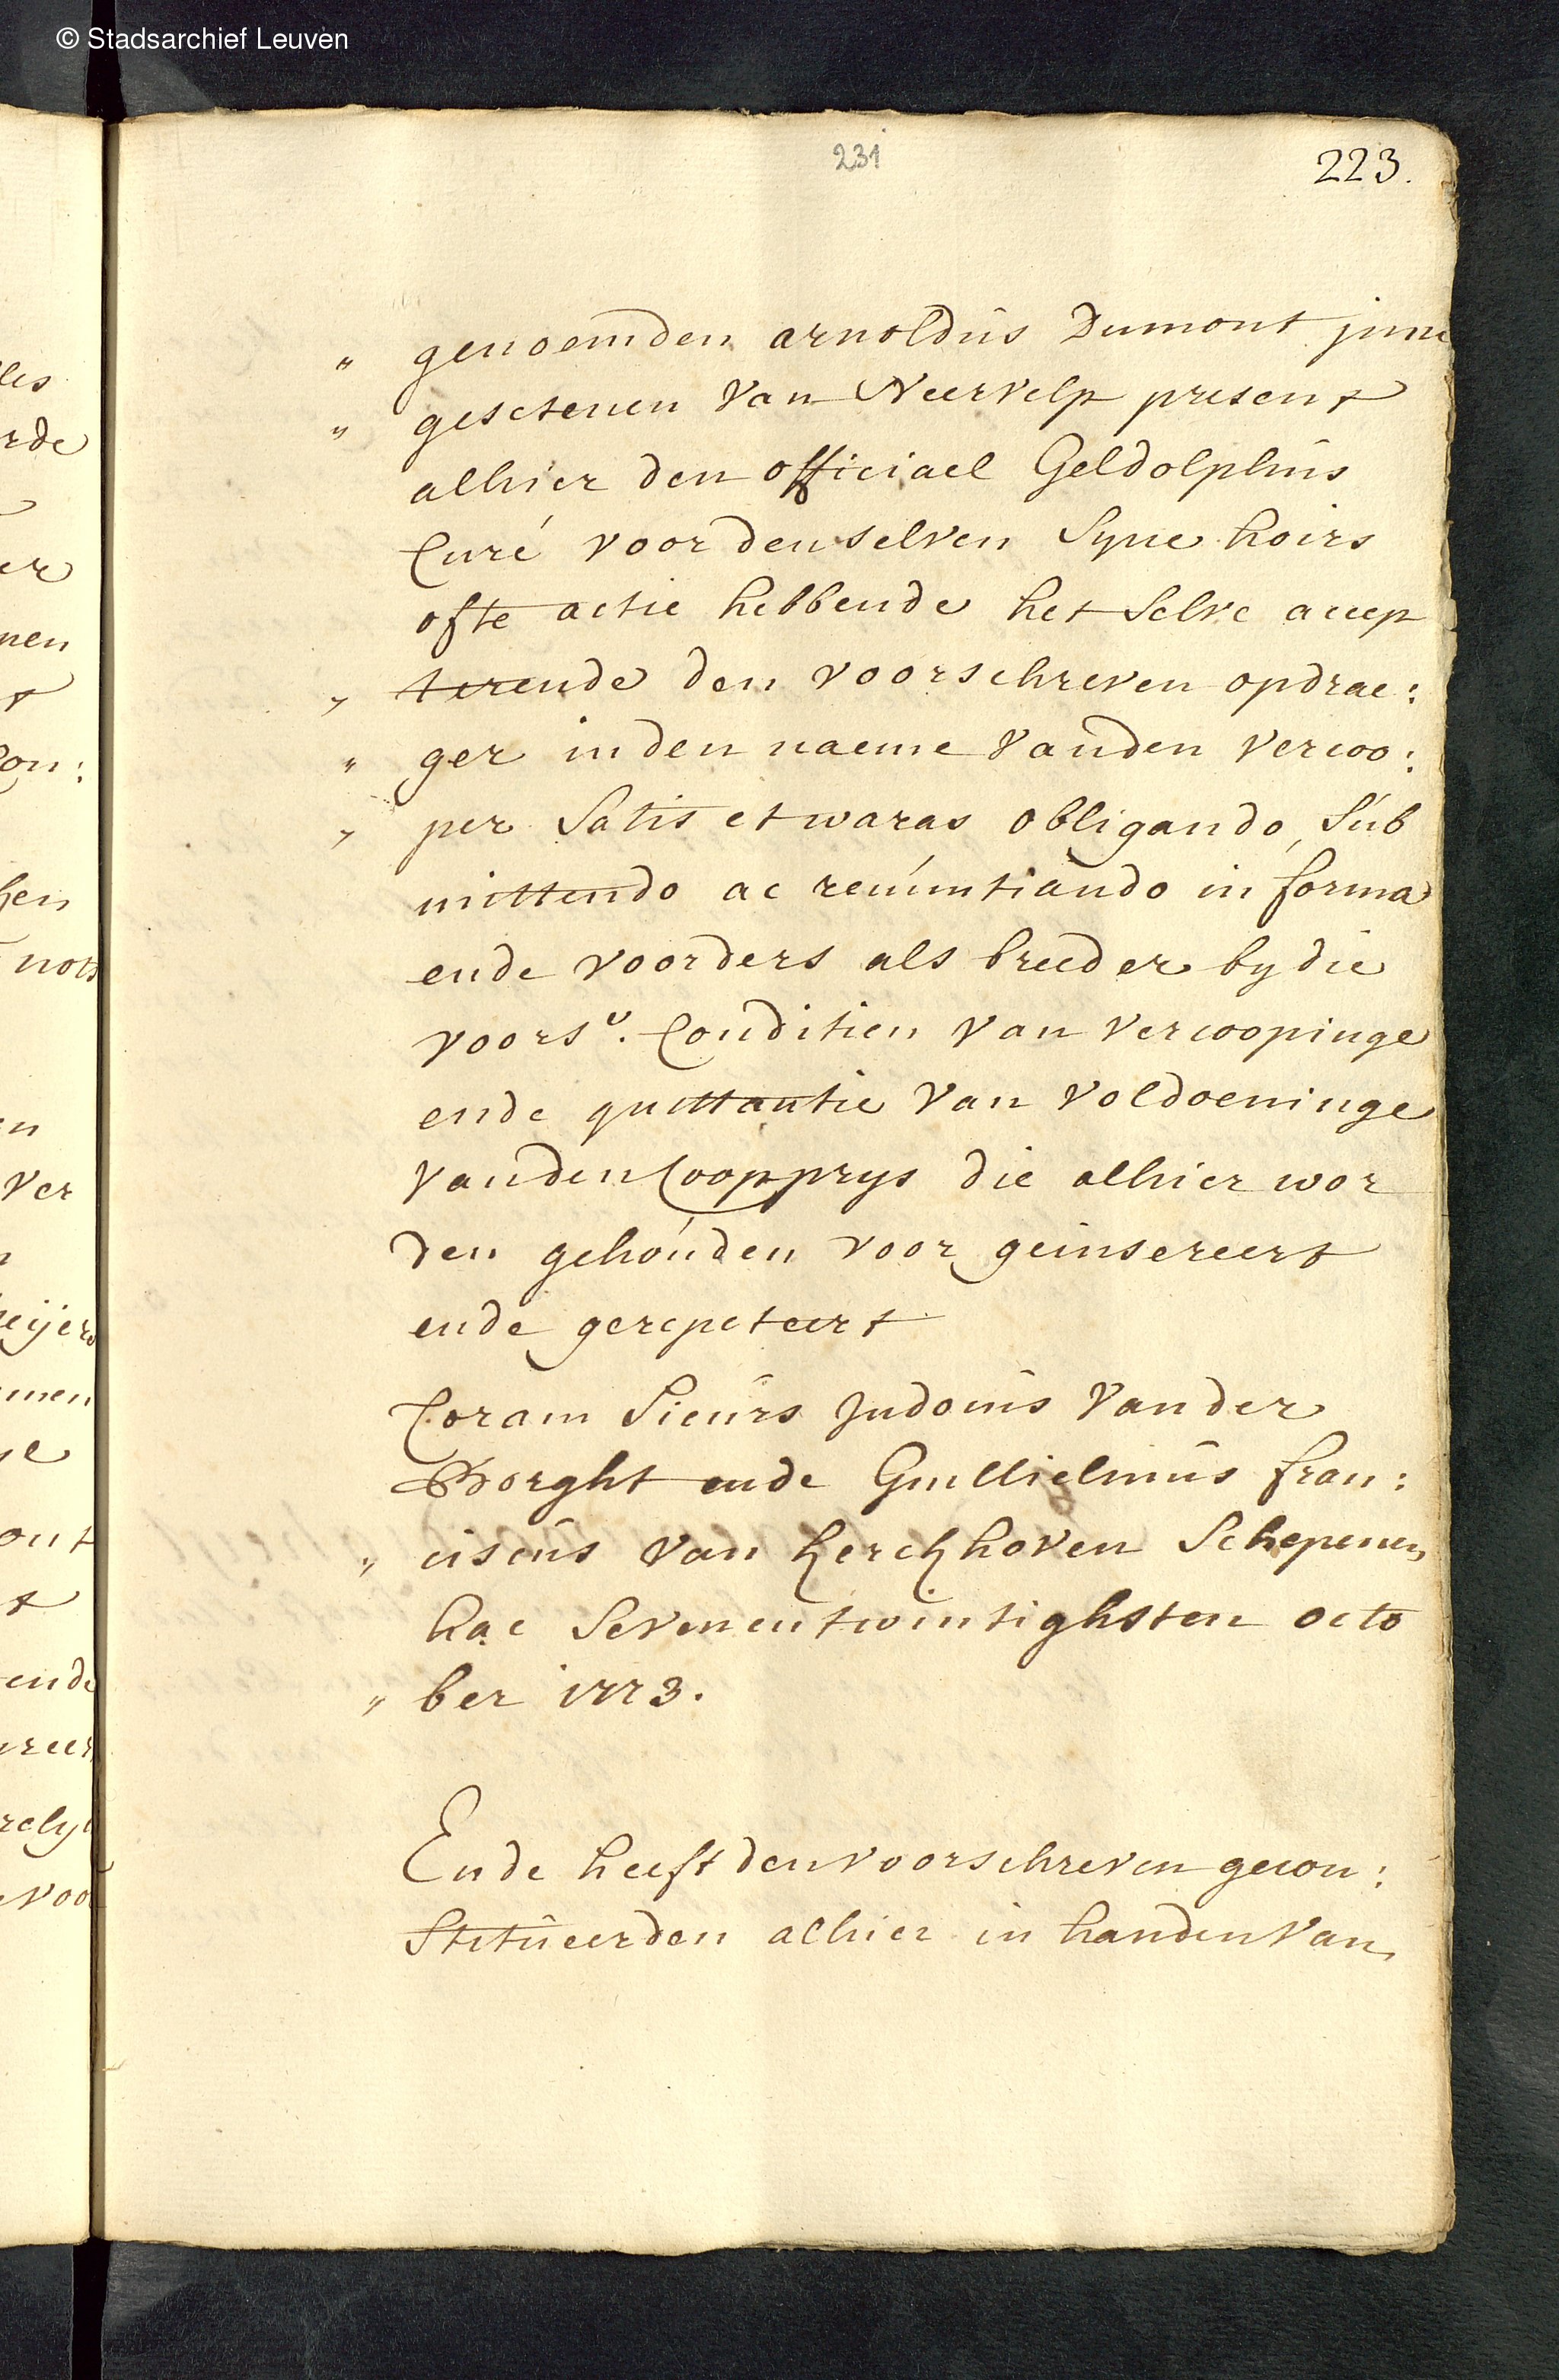 © Stadsarchief Leuven
231
223.
" genoemden arnoldus Dumont jnne
" gesetenen van Neervelp present
alhier den officiael Geldolphus
Curé voor denselven Syne hoirs
ofte actie hebbende het Selve accep
" terende den voorschreven opdrae:
" ger in den naeme vanden vercoo:
" per Satis et waras obligando, Sub
mittendo ac renuntiando in forma
ende voorders als breeder by die
voorsv. Conditien van vercoopinge
ende quittantie van voldoeninge
vanden Coopprys die alhier wor
den gehouden voor geinsereert
ende gerepeteert
Coram Sieurs Judocus Vander
Borght ende Guillielmus fran:
" ciscus van kerckhoven Schepenen
hac Sevenentwintighsten octo
" ber 1773.
Ende heeft den voorschreven gecon:
Stitueerden alhier in handen van